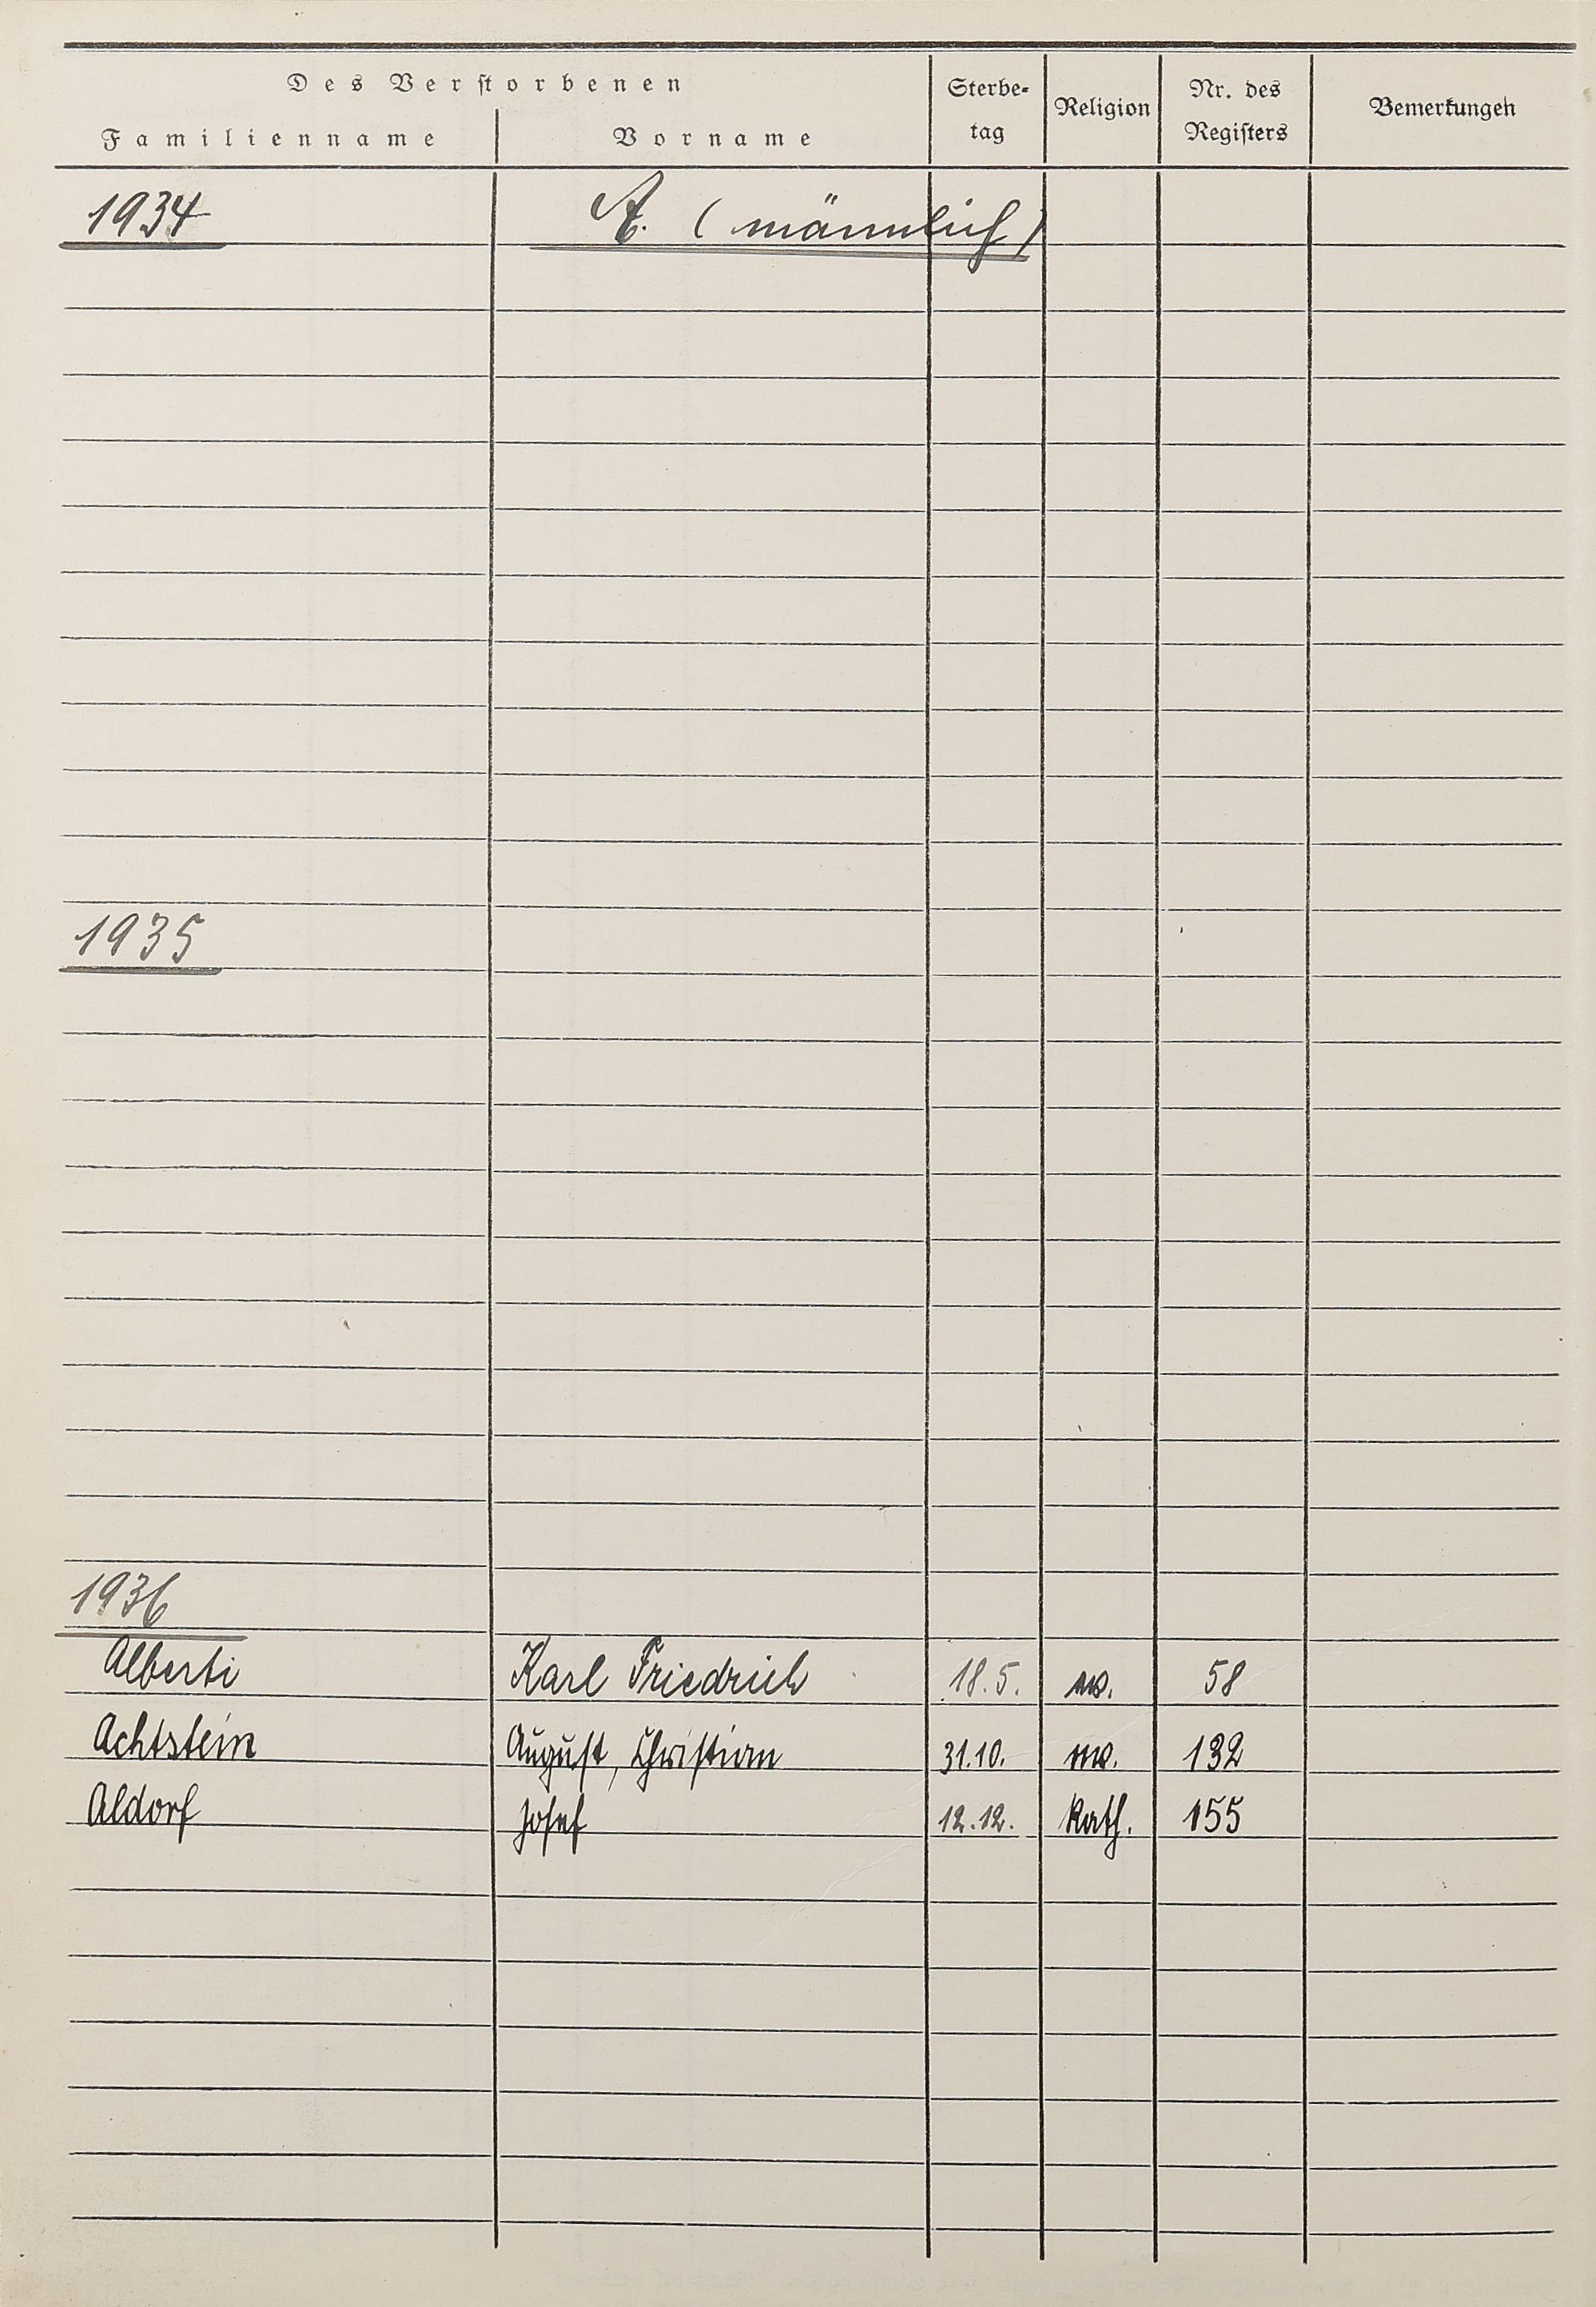 Des Verstorbenen
Familienname Vorname Sterbe-tag Religion Nr. des Registers Bemerkungen
1934 A. (männlich)
1935
1936
Alberti Karl Friedrich 18.5. ev. 58
Achtstein August, Christian 31.10. ev. 132
Aldorf Josef 12.12. kath. 155